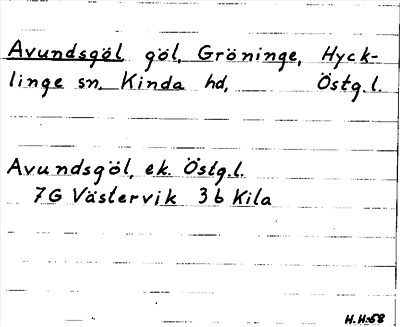 Avundsgöl göl, Gröninge, Hyck-
linge sn, Kinda hd, Östg.l.
Avundsgöl, ek. Östg.l.
7G Västervik 3b Kila
H.H:58